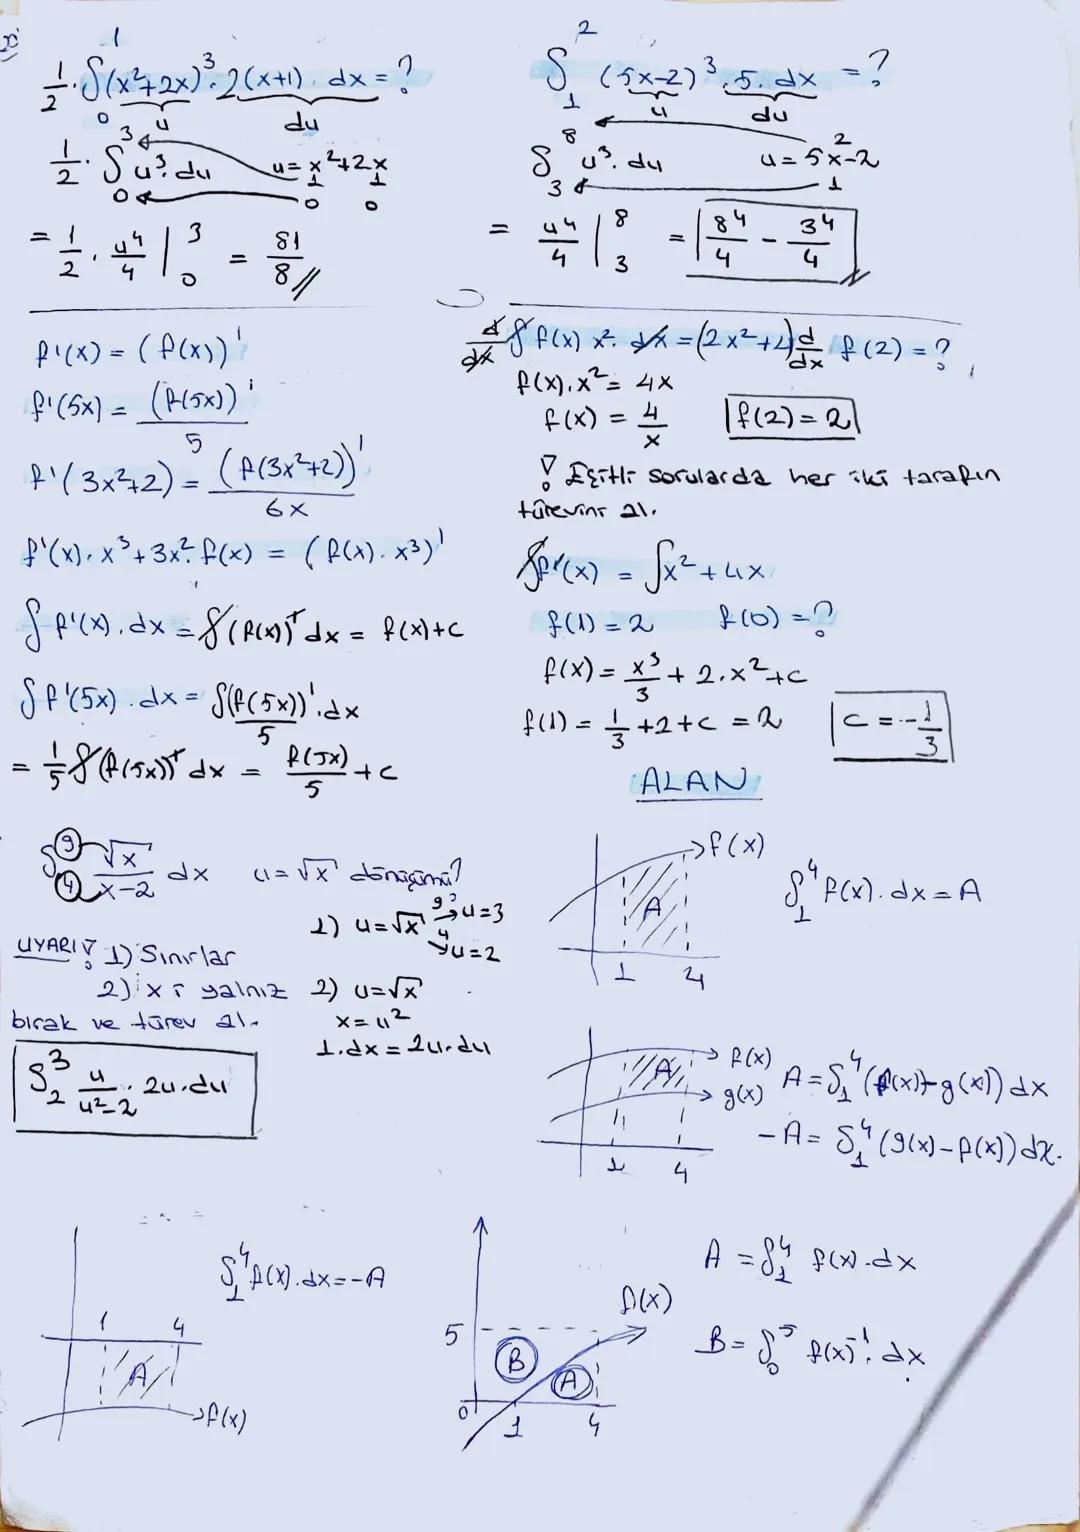 1/2 · ∫₀¹ (x²+2x)³ · 2(x+1) · dx = ?
u du
1/2 · ∫₀³ u³ · du u = x²+2x
1 1
0 0
= 1/2 · u⁴/4 |₀³ = 81/8 //
∫₁² (5x-2)³ · 5 · dx = ?
u du
∫₃⁸ u³ · du u = 5x-2
2
1
= u⁴/4 |₃⁸ = 8⁴/4 - 3⁴/4
f'(x) = (f(x))'
f'(5x) = (f(5x))'/5
f'(3x²+2) = (f(3x²+2))'/6x
f'(x) · x³ + 3x² · f(x) = (f(x) · x³)'
∫ f'(x) · dx = ∫ (f(x))' dx = f(x)+c
∫ f'(5x) · dx = ∫ (f(5x))'/5 · dx
= 1/5 ∫ (f(5x))' dx = f(5x)/5 + c
d/dx ∫ f(x) x² · dx = (2x²+4) d/dx f(2) = ?
f(x) · x² = 4x
f(x) = 4/x f(2) = 2
! Eşitli sorularda her iki tarafın
türevini al.
∫ f'(x) = ∫ x² + 4x
f(1) = 2 f(0) = ?
f(x) = x³/3 + 2·x² + c
f(1) = 1/3 + 2 + c = 2 c = -1/3
∫₄⁹ √x/(x-2) dx u = √x dönüşümü?
1) u = √x 9 → u = 3
4 → u = 2
UYARI! 1) Sınırlar
2) x'i yalnız
bırak ve türev al.
2) u = √x
x = u²
1·dx = 2u·du
∫₂³ u/(u²-2) · 2u·du
ALAN
f(x)
A
1 4
∫₁⁴ f(x) · dx = A
f(x)
A
g(x)
1 4
A = ∫₁⁴ (f(x)-g(x)) dx
-A = ∫₁⁴ (g(x)-f(x)) dx.
∫₁⁴ f(x) · dx = -A
1 4
A
f(x)
f(x)
5
B
A
0
1 4
A = ∫₁⁴ f(x) · dx
B = ∫₀⁵ f(x)⁻¹ · dx